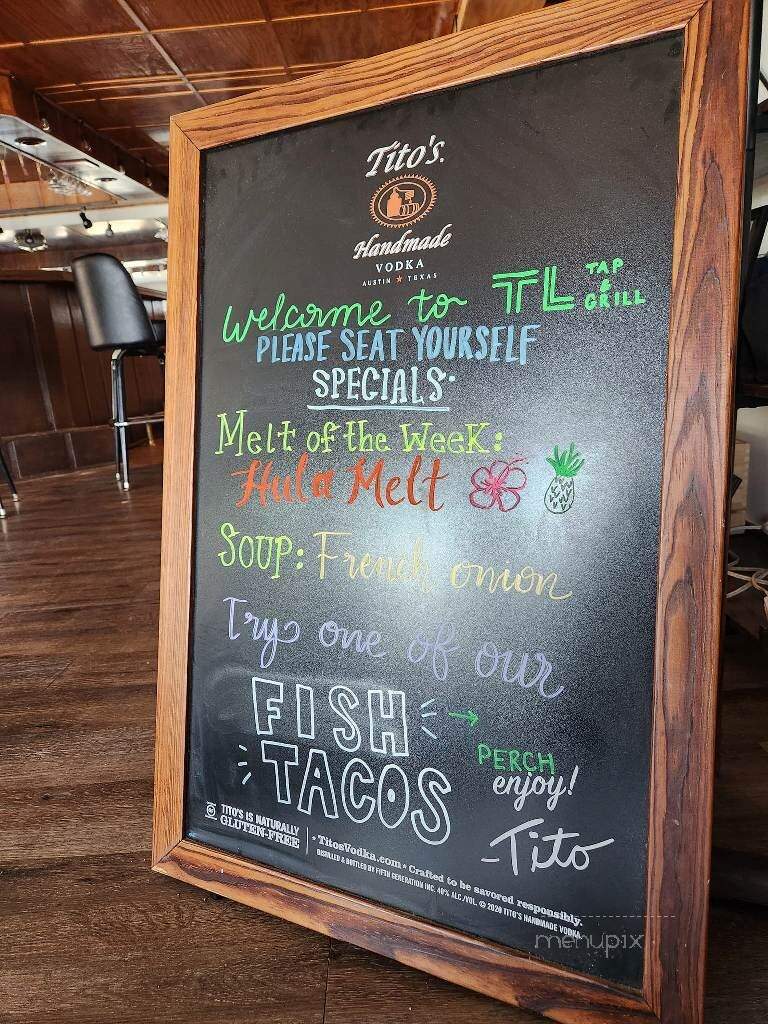 Tito's.
Handmade
VODKA
AUSTIN ★ TEXAS
Welcome to TL TAP & GRILL
PLEASE SEAT YOURSELF
SPECIALS·
Melt of the Week:
Hula Melt
SOUP: French onion
Try one of our
FISH →
TACOS PERCH
enjoy!
-Tito
TITO'S IS NATURALLY
GLUTEN-FREE
• TitosVodka.com • Crafted to be savored responsibly.
DISTILLED & BOTTLED BY FIFTH GENERATION INC. 40% ALC./VOL. © 2020 TITO'S HANDMADE VODKA.
menupix